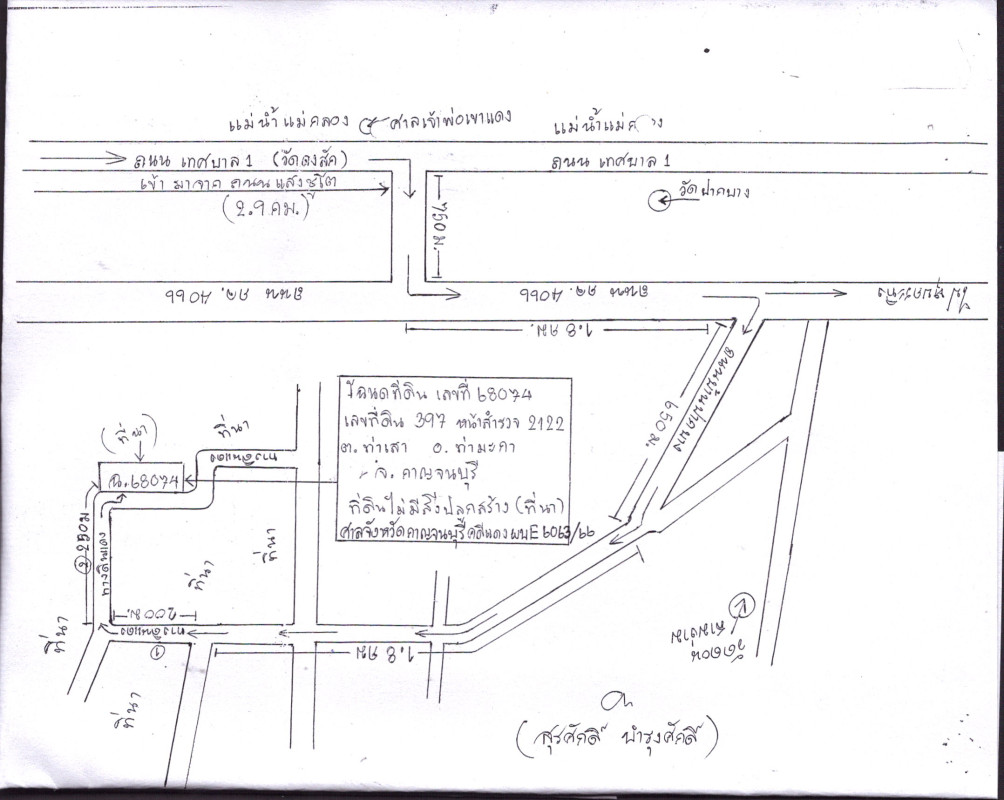 แม่น้ำแม่กลอง
ศาลเจ้าพ่อเขาแดง
แม่น้ำแม่ก
ถนน เทศบาล 1 (วัดดงสัก)
ถนน เทศบาล 1
เข้า มาจาก ถนน แสงชูโต
(2.9 กม.)
วัด ฝาคบาง
750 ม.
ถนน สย. 4066
ถนน สย. 4066
1.8 กม.
650 ม.
โฉนดที่ดิน เลขที่ 68074
เลขที่ดิน 397 หน้าสำรวจ 2122
ต. ท่าเสา อ. ท่ามะกา
จ. กาญจนบุรี
ที่ดินไม่มีสิ่งปลูกสร้าง (ที่นา)
ศาลจังหวัดกาญจนบุรี คดีแดง ผบ E6063/66
(ที่นา)
ที่นา
ทางดินแดง
ฉ. 68074
② 250 ม
ทางดินแดง
ที่นา
ที่นา
200 ม.
ทางดินแดง
①
ที่นา
1.8 กม
ที่นา
(สุรศักดิ์ บำรุงศักดิ์)